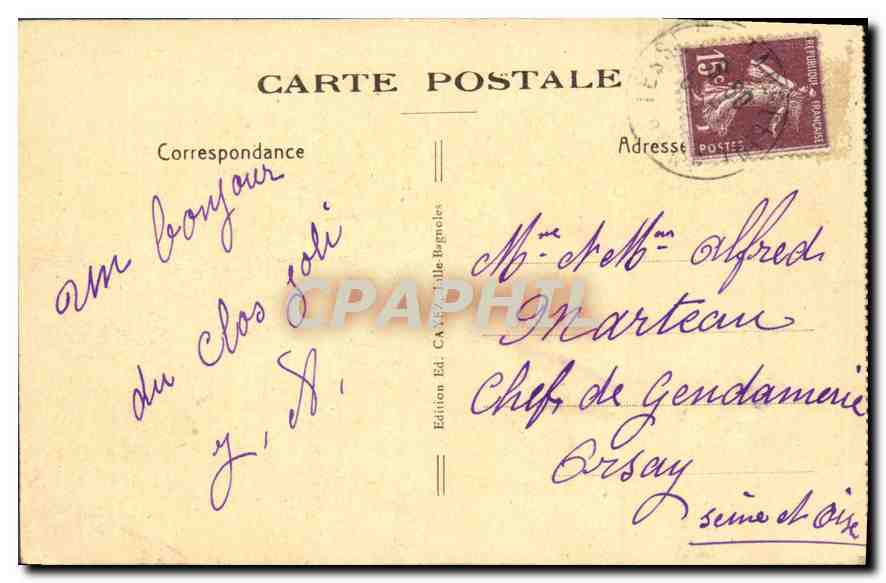 CARTE POSTALE
Correspondance
Adresse
RÉPUBLIQUE FRANÇAISE
15c
POSTES
un bonjour
du clos joli
J, N,
Edition Ed. CAYEZ, Lille-Bagnoles
CPAPHIL
Mme et Mr Alfred
Marteau
Chef, de Gendamerie
Orsay
seine et Oise